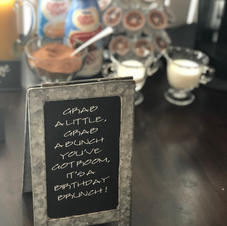 GRAB
A LITTLE,
GRAB
A BUNCH
YOU'VE
GOT ROOM,
IT'S A
BIRTHDAY
BRUNCH!